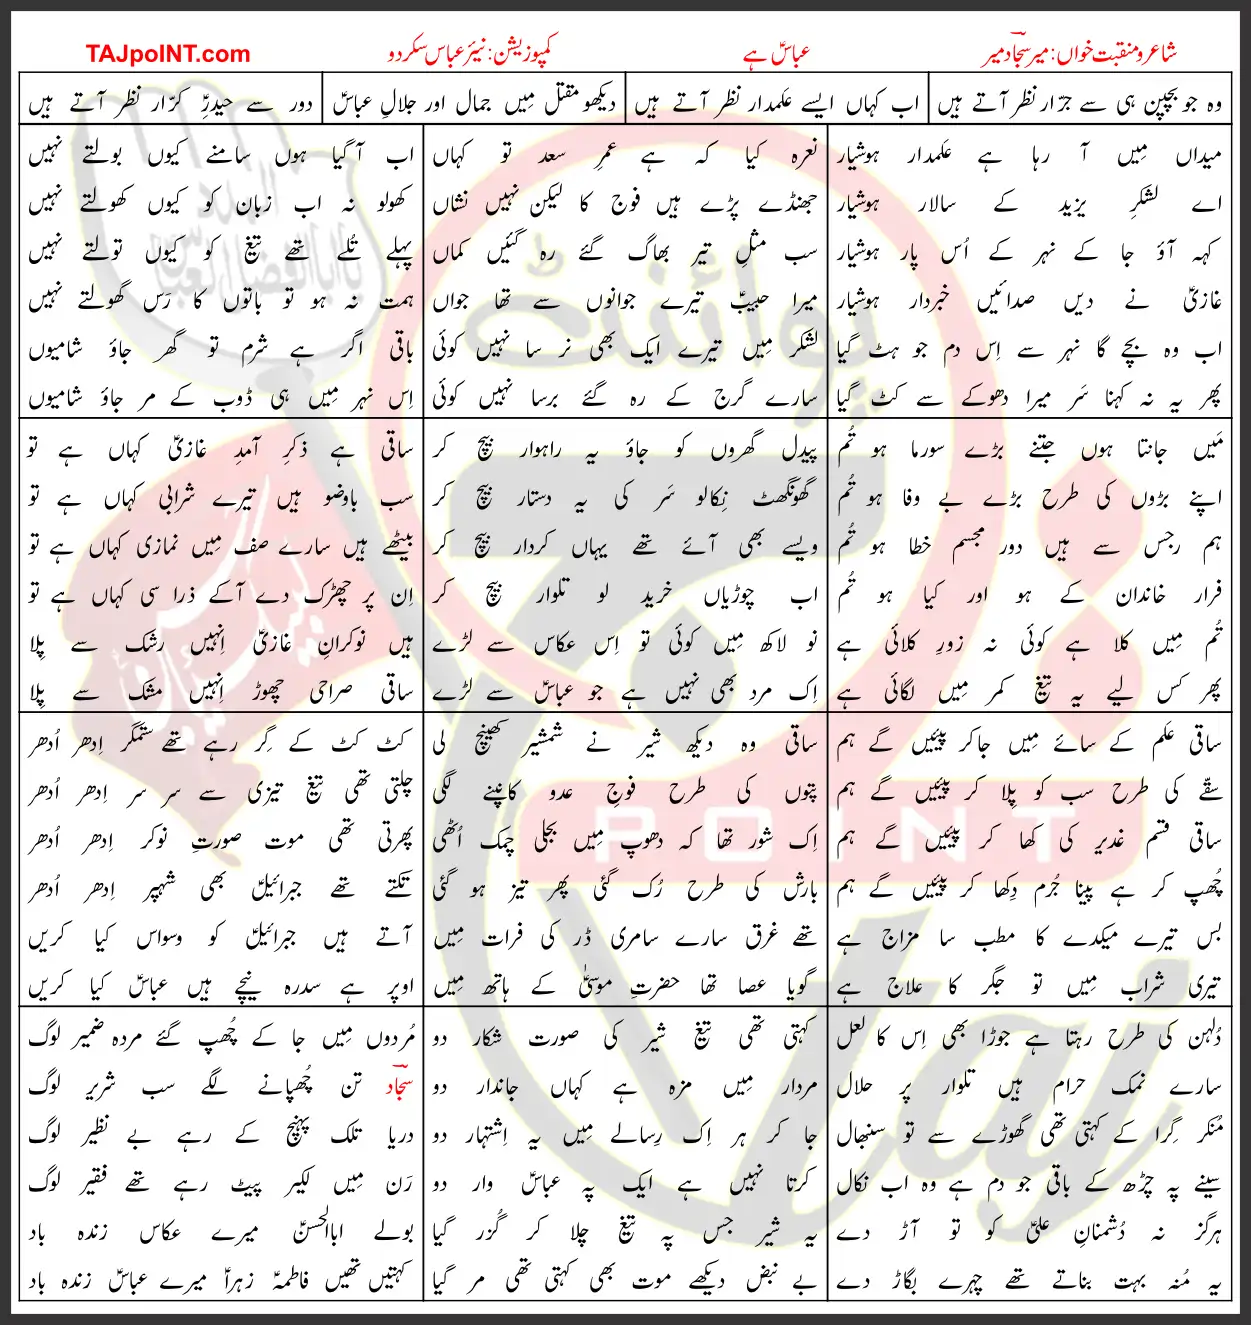 شاعر و منقبت خواں: میر سجاد میر
عباسؑ ہے
کمپوزیشن: نیئر عباس سکردو
TAJpoINT.com
وہ جو بچپن ہی سے جرّار نظر آتے ہیں
اب کہاں ایسے علمدار نظر آتے ہیں
دیکھو مقتل مِیں جمال اور جلالِ عباسؑ
دور سے حیدرِؑ کرّار نظر آتے ہیں
میداں مِیں آ رہا ہے عَلمدار ہوشیار
اے لشکرِ یزید کے سالار ہوشیار
کہہ آؤ جا کے نہر کے اُس پار ہوشیار
غازیؑ نے دیں صدائیں خبردار ہوشیار
اب وہ بچے گا نہر سے اِس دم جو ہٹ گیا
پھر یہ نہ کہنا سَر میرا دھوکے سے کٹ گیا
نعرہ کیا کہ ہے عمرِ سعد تو کہاں
جھنڈے پڑے ہیں فوج کا لیکن نہیں نشاں
سب مثلِ تیر بھاگ گئے رہ گئیں کماں
میرا حبیبؑ تیرے جوانوں سے تھا جواں
لشکر مِیں تیرے ایک بھی نر سا نہیں کوئی
سارے گرج کے رہ گئے برسا نہیں کوئی
اب آگیا ہوں سامنے کیوں بولتے نہیں
کھولو نہ اب زبان کو کیوں کھولتے نہیں
پہلے تُلے تھے تیغ کو کیوں تولتے نہیں
ہمت نہ ہو تو باتوں کا رَس گھولتے نہیں
باقی اگر ہے شرم تو گھر جاؤ شامیوں
اِس نہر مِیں ہی ڈوب کے مر جاؤ شامیوں
مَیں جانتا ہوں جتنے بڑے سورما ہو تُم
اپنے بڑوں کی طرح بڑے بے وفا ہو تُم
ہم رجس سے ہیں دور مجسم خطا ہو تُم
فرار خاندان کے ہو اور کیا ہو تُم
تُم مِیں کلا ہے کوئی نہ زورِ کلائی ہے
پھر کس لیے یہ تیغ کمر مِیں لگائی ہے
پیدل گھروں کو جاؤ یہ راہوار بیچ کر
گھونگھٹ نِکالو سَر کی یہ دستار بیچ کر
ویسے بھی آئے تھے یہاں کردار بیچ کر
اب چوڑیاں خرید لو تلوار بیچ کر
نو لاکھ مِیں کوئی تو اِس عکاس سے لڑے
اِک مرد بھی نہیں ہے جو عباسؑ سے لڑے
ساقی ہے ذکرِ آمدِ غازیؑ کہاں ہے تو
سب باوضو ہیں تیرے شرابی کہاں ہے تو
بیٹھے ہیں سارے صف مِیں نمازی کہاں ہے تو
اِن پر چھڑک دے آکے ذرا سی کہاں ہے تو
ہیں نوکرانِ غازیؑ اِنہیں رشک سے پِلا
ساقی صراحی چھوڑ اِنہیں مشک سے پِلا
ساقی عَلم کے سائے مِیں جاکر پیئیں گے ہم
سقّے کی طرح سب کو پِلا کر پیئیں گے ہم
ساقی قسم غدیر کی کھا کر پیئیں گے ہم
چُھپ کر ہے پینا جُرم دِکھا کر پیئیں گے ہم
بس تیرے میکدے کا مطب سا مزاج ہے
تیری شراب مِیں تو جگر کا علاج ہے
ساقی وہ دیکھ شیر نے شمشیر کھینچ لی
پتوں کی طرح فوجِ عدو کانپنے لگی
اِک شور تھا کہ دھوپ مِیں بجلی چمک اُٹھی
بارش کی طرح رُک گئی پھر تیز ہو گئی
تھے غرق سارے سامری ڈر کی فرات مِیں
گویا عصا تھا حضرتِ موسیٰؑ کے ہاتھ مِیں
کٹ کٹ کے گِر رہے تھے ستمگر اِدھر اُدھر
چلتی تھی تیغ تیزی سے سر سر اِدھر اُدھر
پھرتی تھی موت صورتِ نوکر اِدھر اُدھر
تکتے تھے جبرائیلؑ بھی شہپر اِدھر اُدھر
آتے ہیں جبرائیلؑ کو وسواس کیا کریں
اوپر ہے سدرہ نیچے ہیں عباسؑ کیا کریں
دُلہن کی طرح رہتا ہے جوڑا بھی اِس کا لعل
سارے نمک حرام ہیں تلوار پر حلال
مُنکر گِرا کے کہتی تھی گھوڑے سے تو سنبھال
سینے پہ چڑھ کے باقی جو دم ہے وہ اب نکال
ہرگز نہ دُشمنانِ علیؑ کو تو آڑ دے
یہ مُنہ بہت بناتے تھے چہرے بگاڑ دے
کہتی تھی تیغ شیر کی صورت شکار دو
مردار مِیں مزہ ہے کہاں جاندار دو
جا کر ہر اِک رِسالے مِیں یہ اِشتہار دو
کرتا نہیں ہے ایک پہ عباسؑ وار دو
یہ شیر جس پہ تیغ چلا کر گُزر گیا
بے نبض دیکھے موت بھی کہتی تھی مر گیا
مُردوں مِیں جا کے چُھپ گئے مردہ ضمیر لوگ
سجاد تن چُھپانے لگے سب شریر لوگ
دریا تلک پہنچ کے رہے بے نظیر لوگ
رَن مِیں لکیر پیٹ رہے تھے فقیر لوگ
بولے ابالحسنؑ میرے عکاس زندہ باد
کہتیں تھیں فاطمہؑ زہراؑ میرے عباسؑ زندہ باد